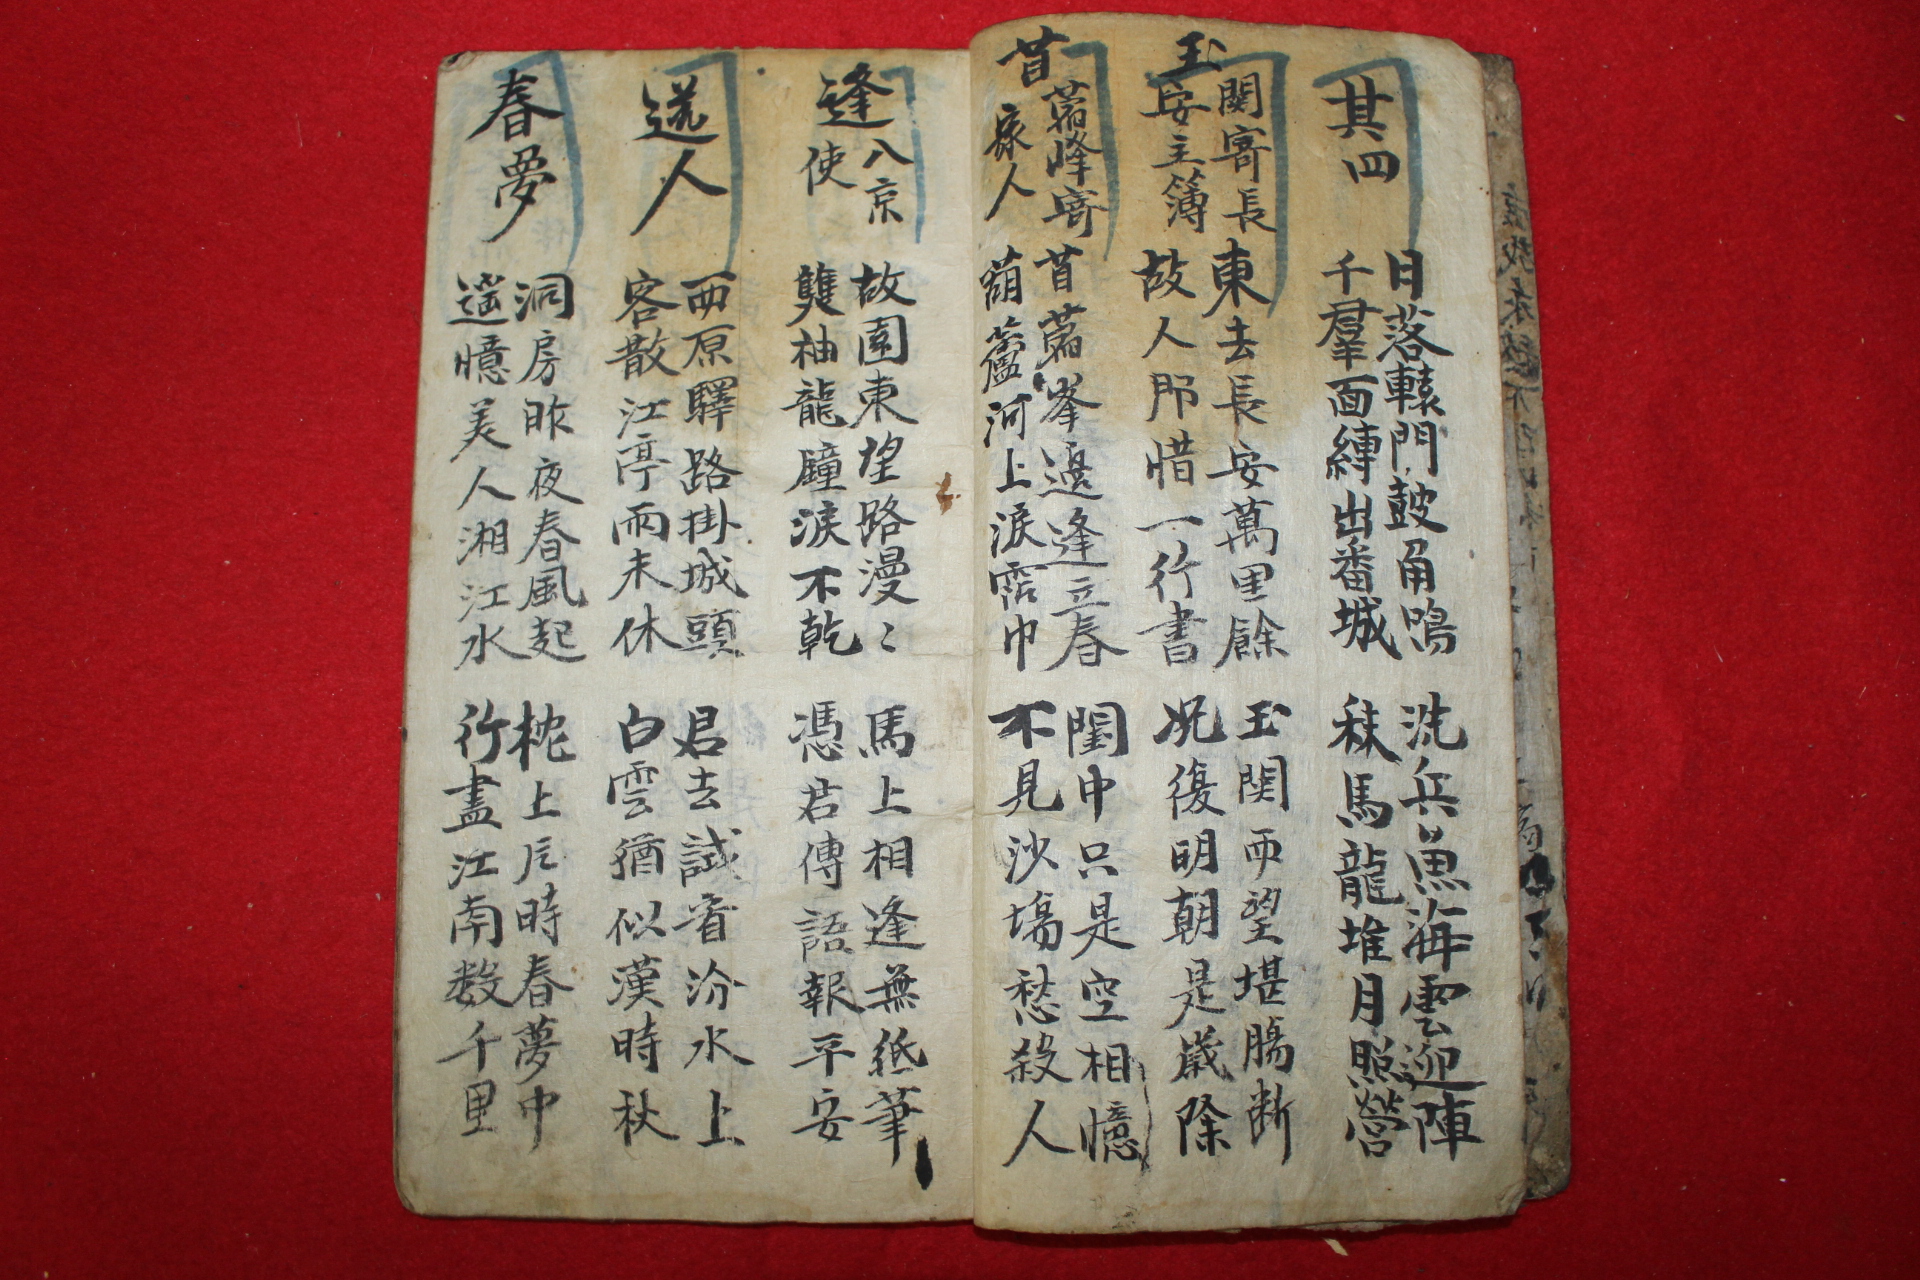 其四
日落轅門鼓角鳴
千羣面縛出番城
洗兵魚海雲迎陣
秣馬龍堆月照營
玉關寄長
安主簿
東去長安萬里餘
故人那惜一行書
玉関西望堪腸断
况復明朝是歲除
首蓿峰寄
家人
首蓿峯邊逢立春
葫蘆河上淚霑巾
閨中只是空相憶
不見沙塲愁殺人
逢入京
使
故園東望路漫〻
雙袖龍鐘淚不乾
馬上相逢無紙筆
憑君傳語報平安
送人
西原驛路掛城頭
客散江亭雨未休
君去試看汾水上
白雲猶似漢時秋
春夢
洞房昨夜春風起
遥憶美人湘江水
枕上片時春夢中
行盡江南数千里